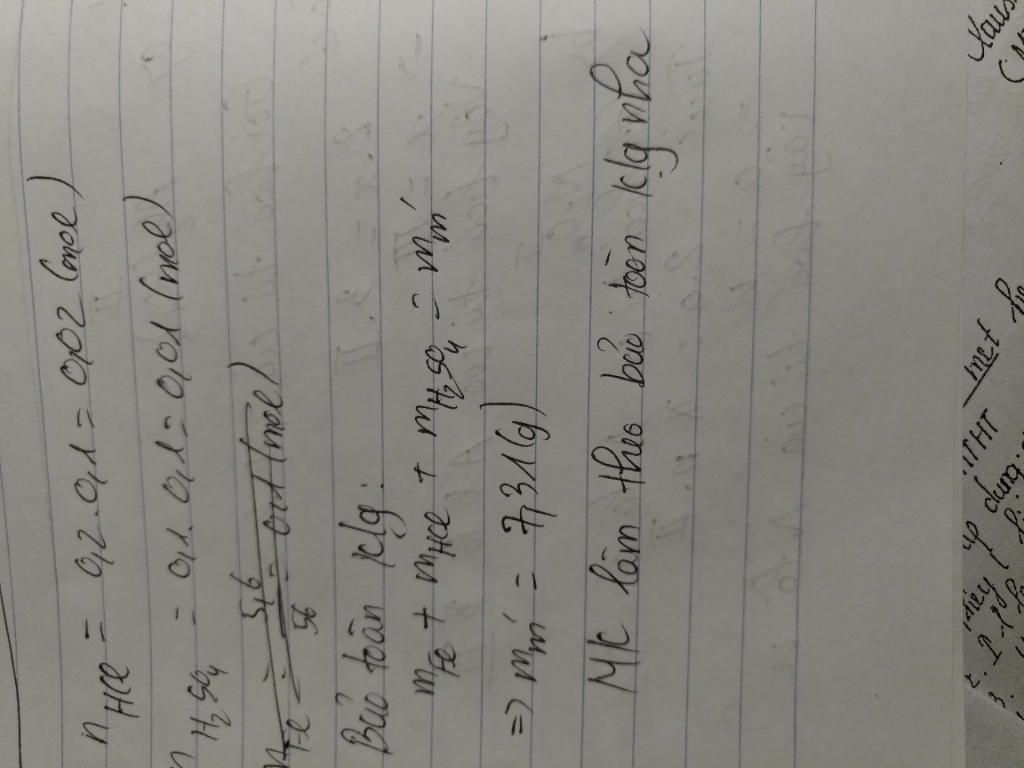 nHCl = 0,2 . 0,1 = 0,02 (mol)
nH2SO4 = 0,1 . 0,1 = 0,01 (mol)
nFe = 5,6/56 = 0,1 (mol)
Bảo toàn klg:
mFe + mHCl + mH2SO4 = mm'
=> mm' = 7,31 (g)
Mk làm theo bảo toàn klg nha
met
áp dụng: